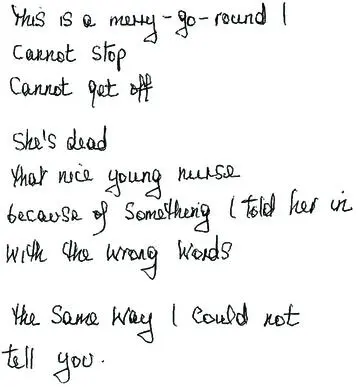 This is a merry-go-round I
Cannot stop
Cannot get off
She's dead
that nice young nurse
because of Something I told her in
with the wrong words
the Same way I could not
tell you.